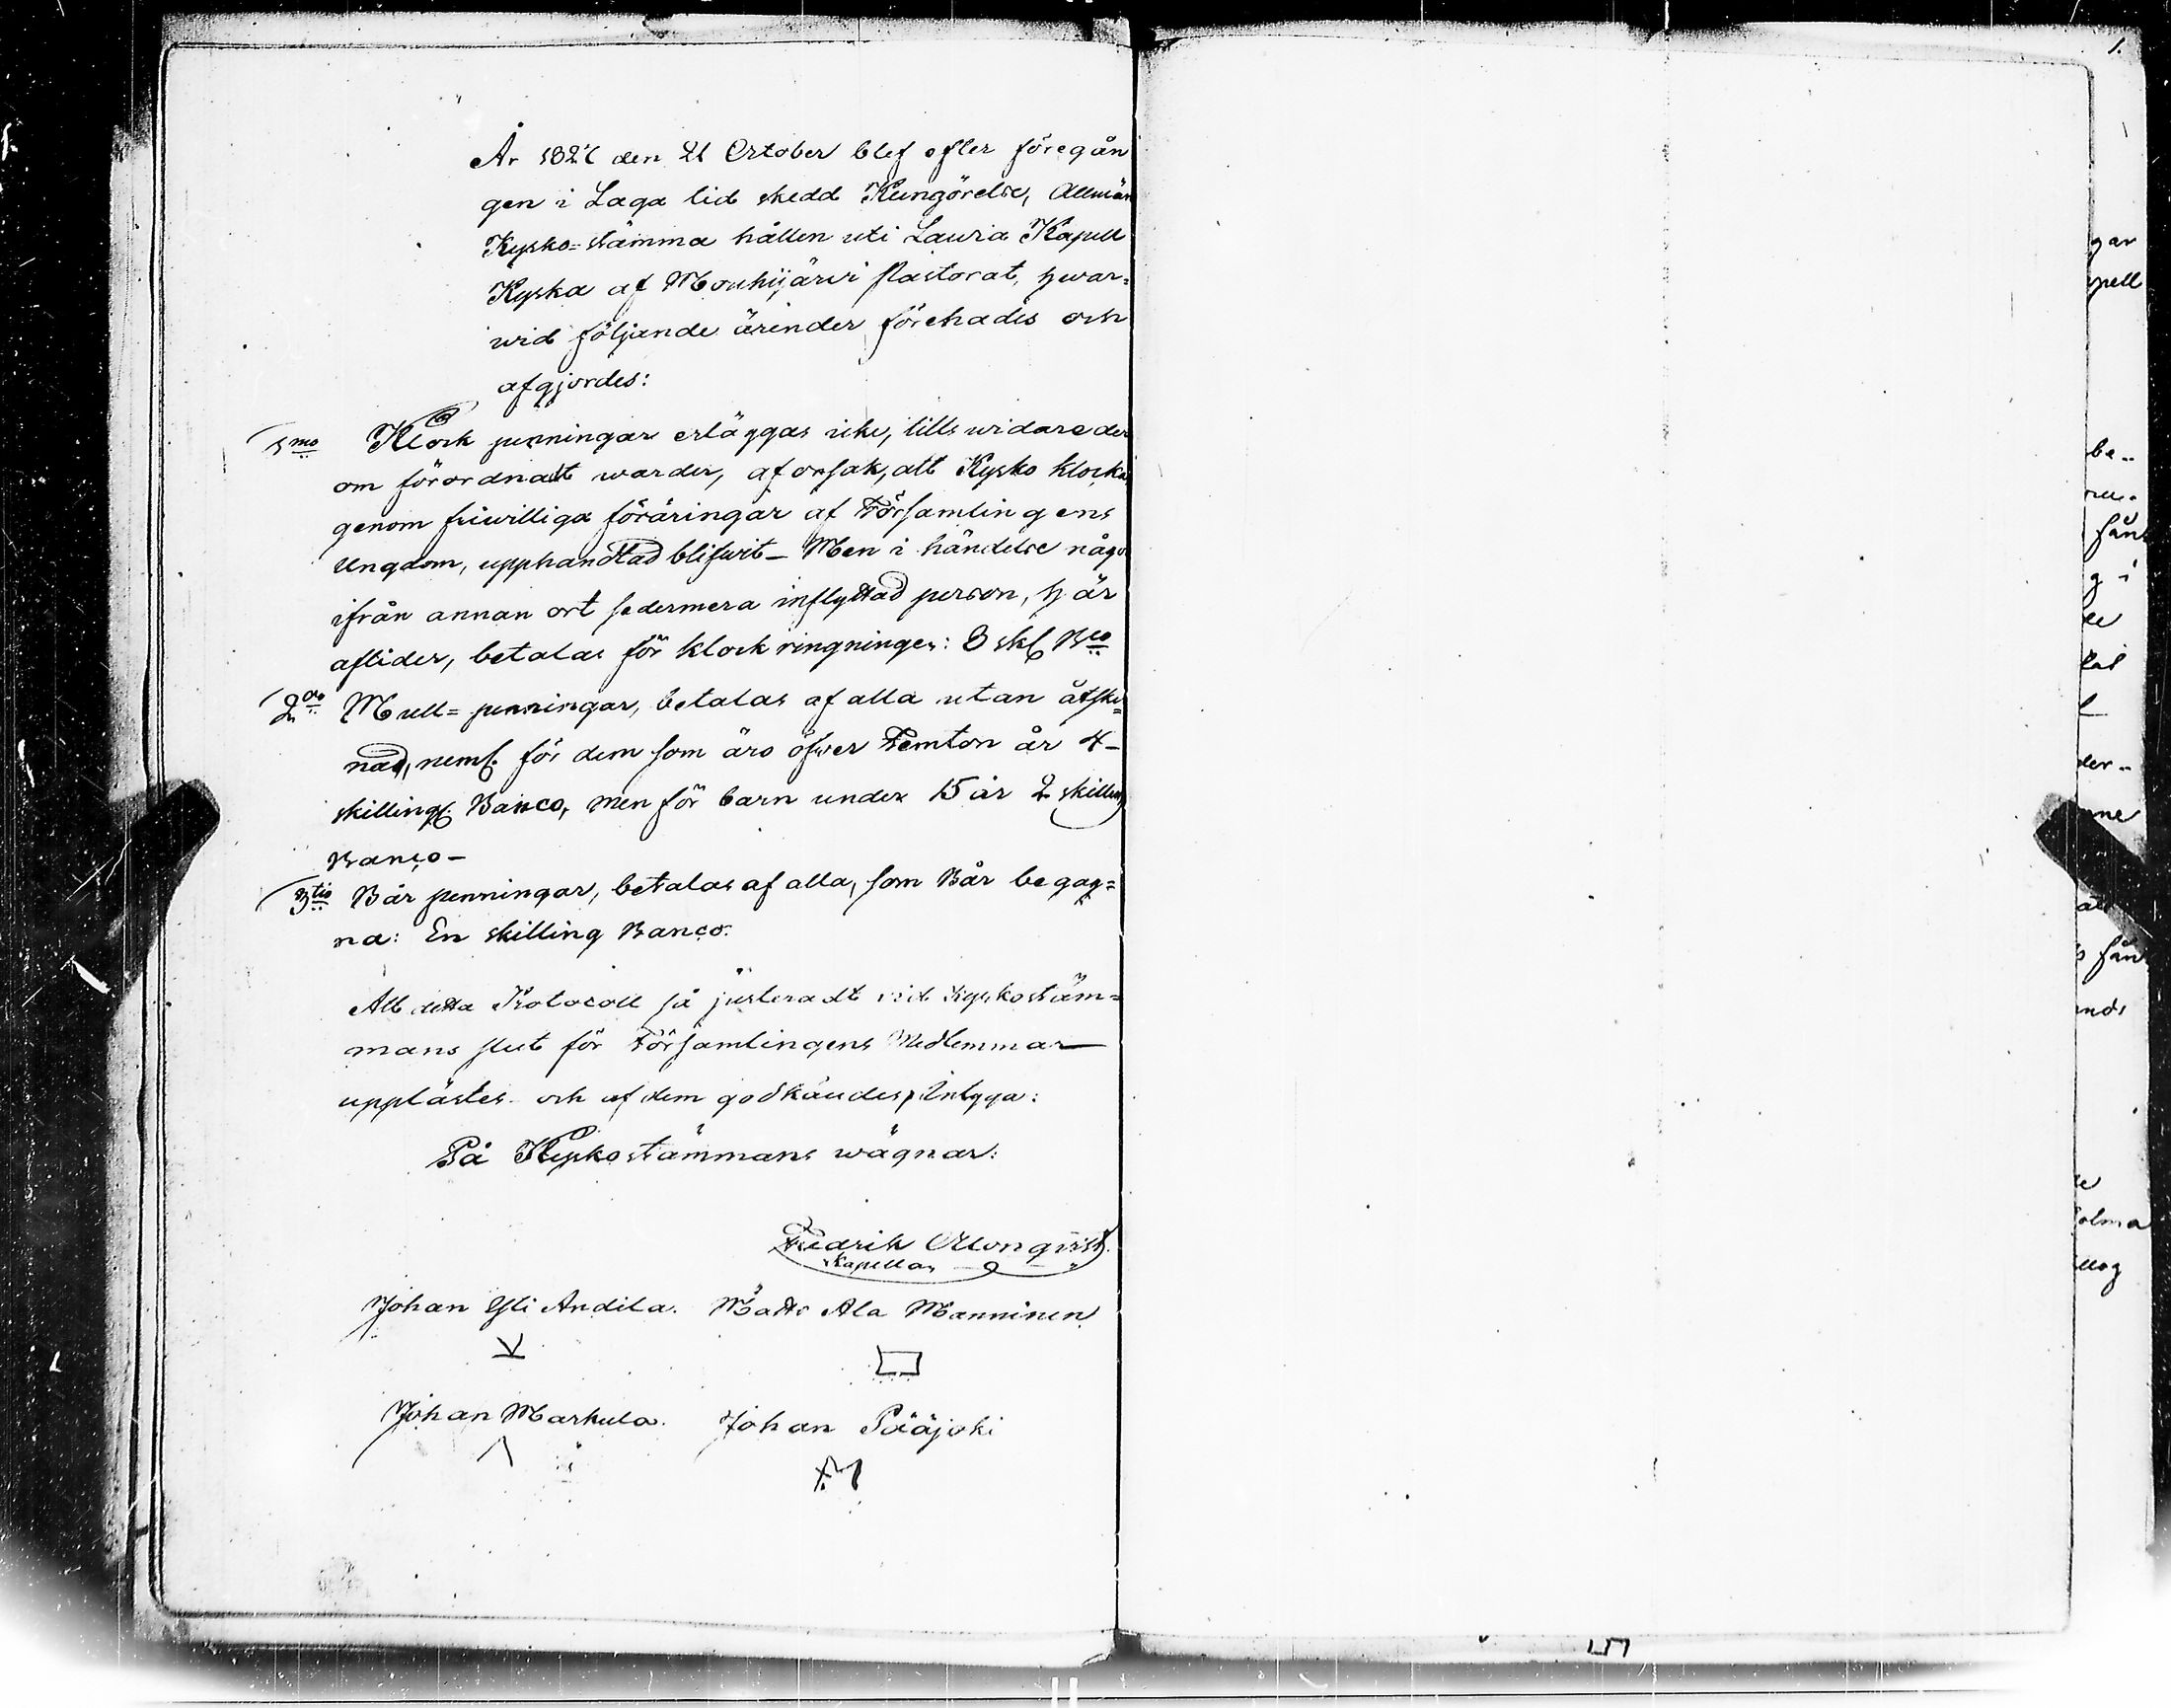 År 182 den 21 October blef efter föregån
gen i Laga tid skedd Kungörelse, Allmän
Kyrko=stämma hållen uti Lauria Kapell
Kyrka af Mouhijärvi Pastorat, hwar=
wid följande ärender förehades och
afgjordes:
1mo Klock penningar erläggas icke, tills widare der
om förordnadt warder, af orsak, att Kyrko klocka
genom friwilliga föräringar af Församlingens
Ungdom, upphandlad blifwit_ Men i händelse någo
ifrån annan ort sedermera inflyttad person, här
aflider, betalas för klock ringningen: 8 sk Bco
2do Mull=penningar, betalas af alla utan åtski=
nad, neml. för dem som äro öfwer Femton år 4_
skilling Banco, men för barn under 15 år 2 skilling
Banco_
3tio Bår penningar, betalas af alla, som Bår begag=
na: En skilling Banco.
Att detta Protocoll så justeradt vid Kyrkostäm=
mans slut för Församlingens Medlemmar
upplästes och af dem godkändes, intyga:
På Kyrkostämmans wägnar:
Fredrik Allonqvist.
Kapellan
Johan Yli Andila. Matts Ala Manninen
Johan Markula. Johan Pääjoki
1.
gar
pell
be..
g i
der..
nne
olma